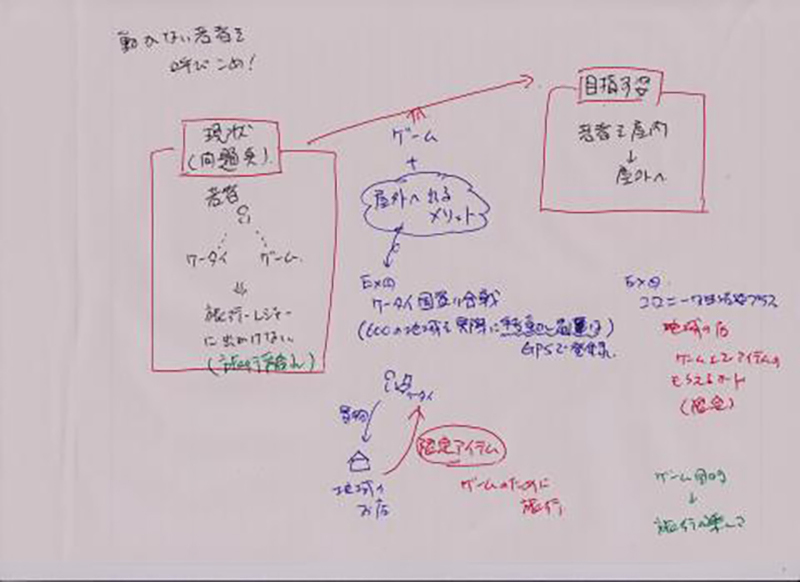 動かない若者を
呼びこめ!
現状
(問題点)
若者
ケータイ ゲーム
旅行・レジャー
に出かけない
ゲーム
+
屋外へ出る
メリット
目指す姿
若者を屋内
↓
屋外へ
Ex①
ケータイ国盗り合戦
(600の地域を実際に
GPSで登録)
ケータイ
買物
地域の
お店
限定アイテム
ゲームのために
旅行
Ex②
コロニーな生活プラス
地域の店
ゲーム上でアイテムの
もらえるカード
(限定)
ゲーム目的
↓
旅行